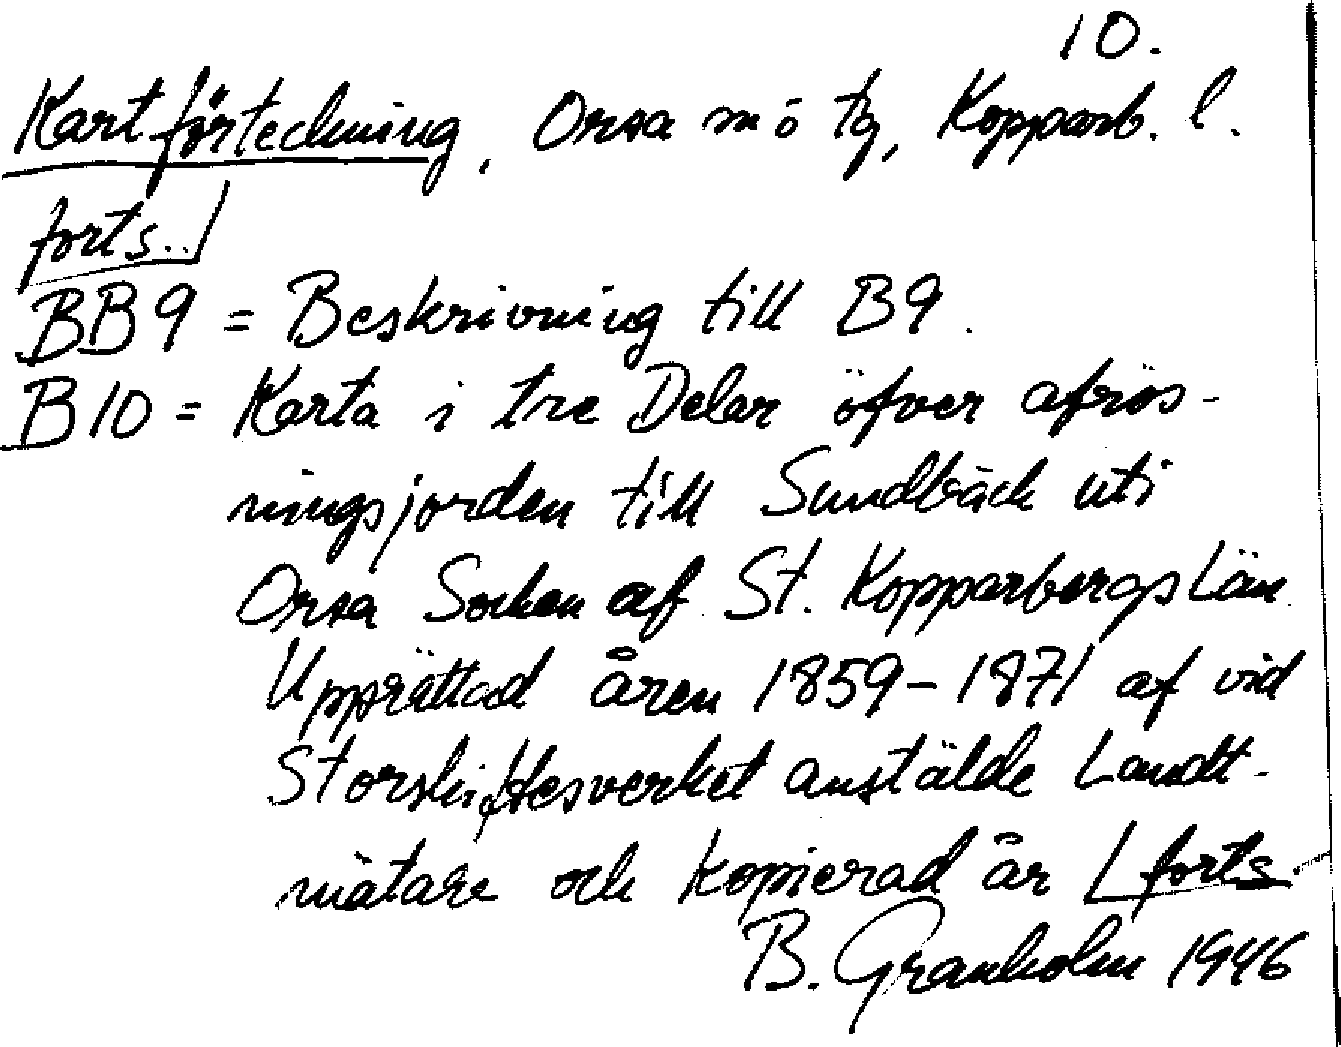 10.
Kartförteckning, Orsa m ö tg, Kopparb. l.
forts..
BB9 = Beskrivning till B9.
B10 = Karta i tre Delar öfver afrös-
ningsjorden till Sundbäck uti
Orsa Socken af St. Kopparbergs Län
Upprättad åren 1859-1871 af vid
Storskiftesverket anstälde Landt-
mätare och Kopierad år / forts
B. Granholm 1946